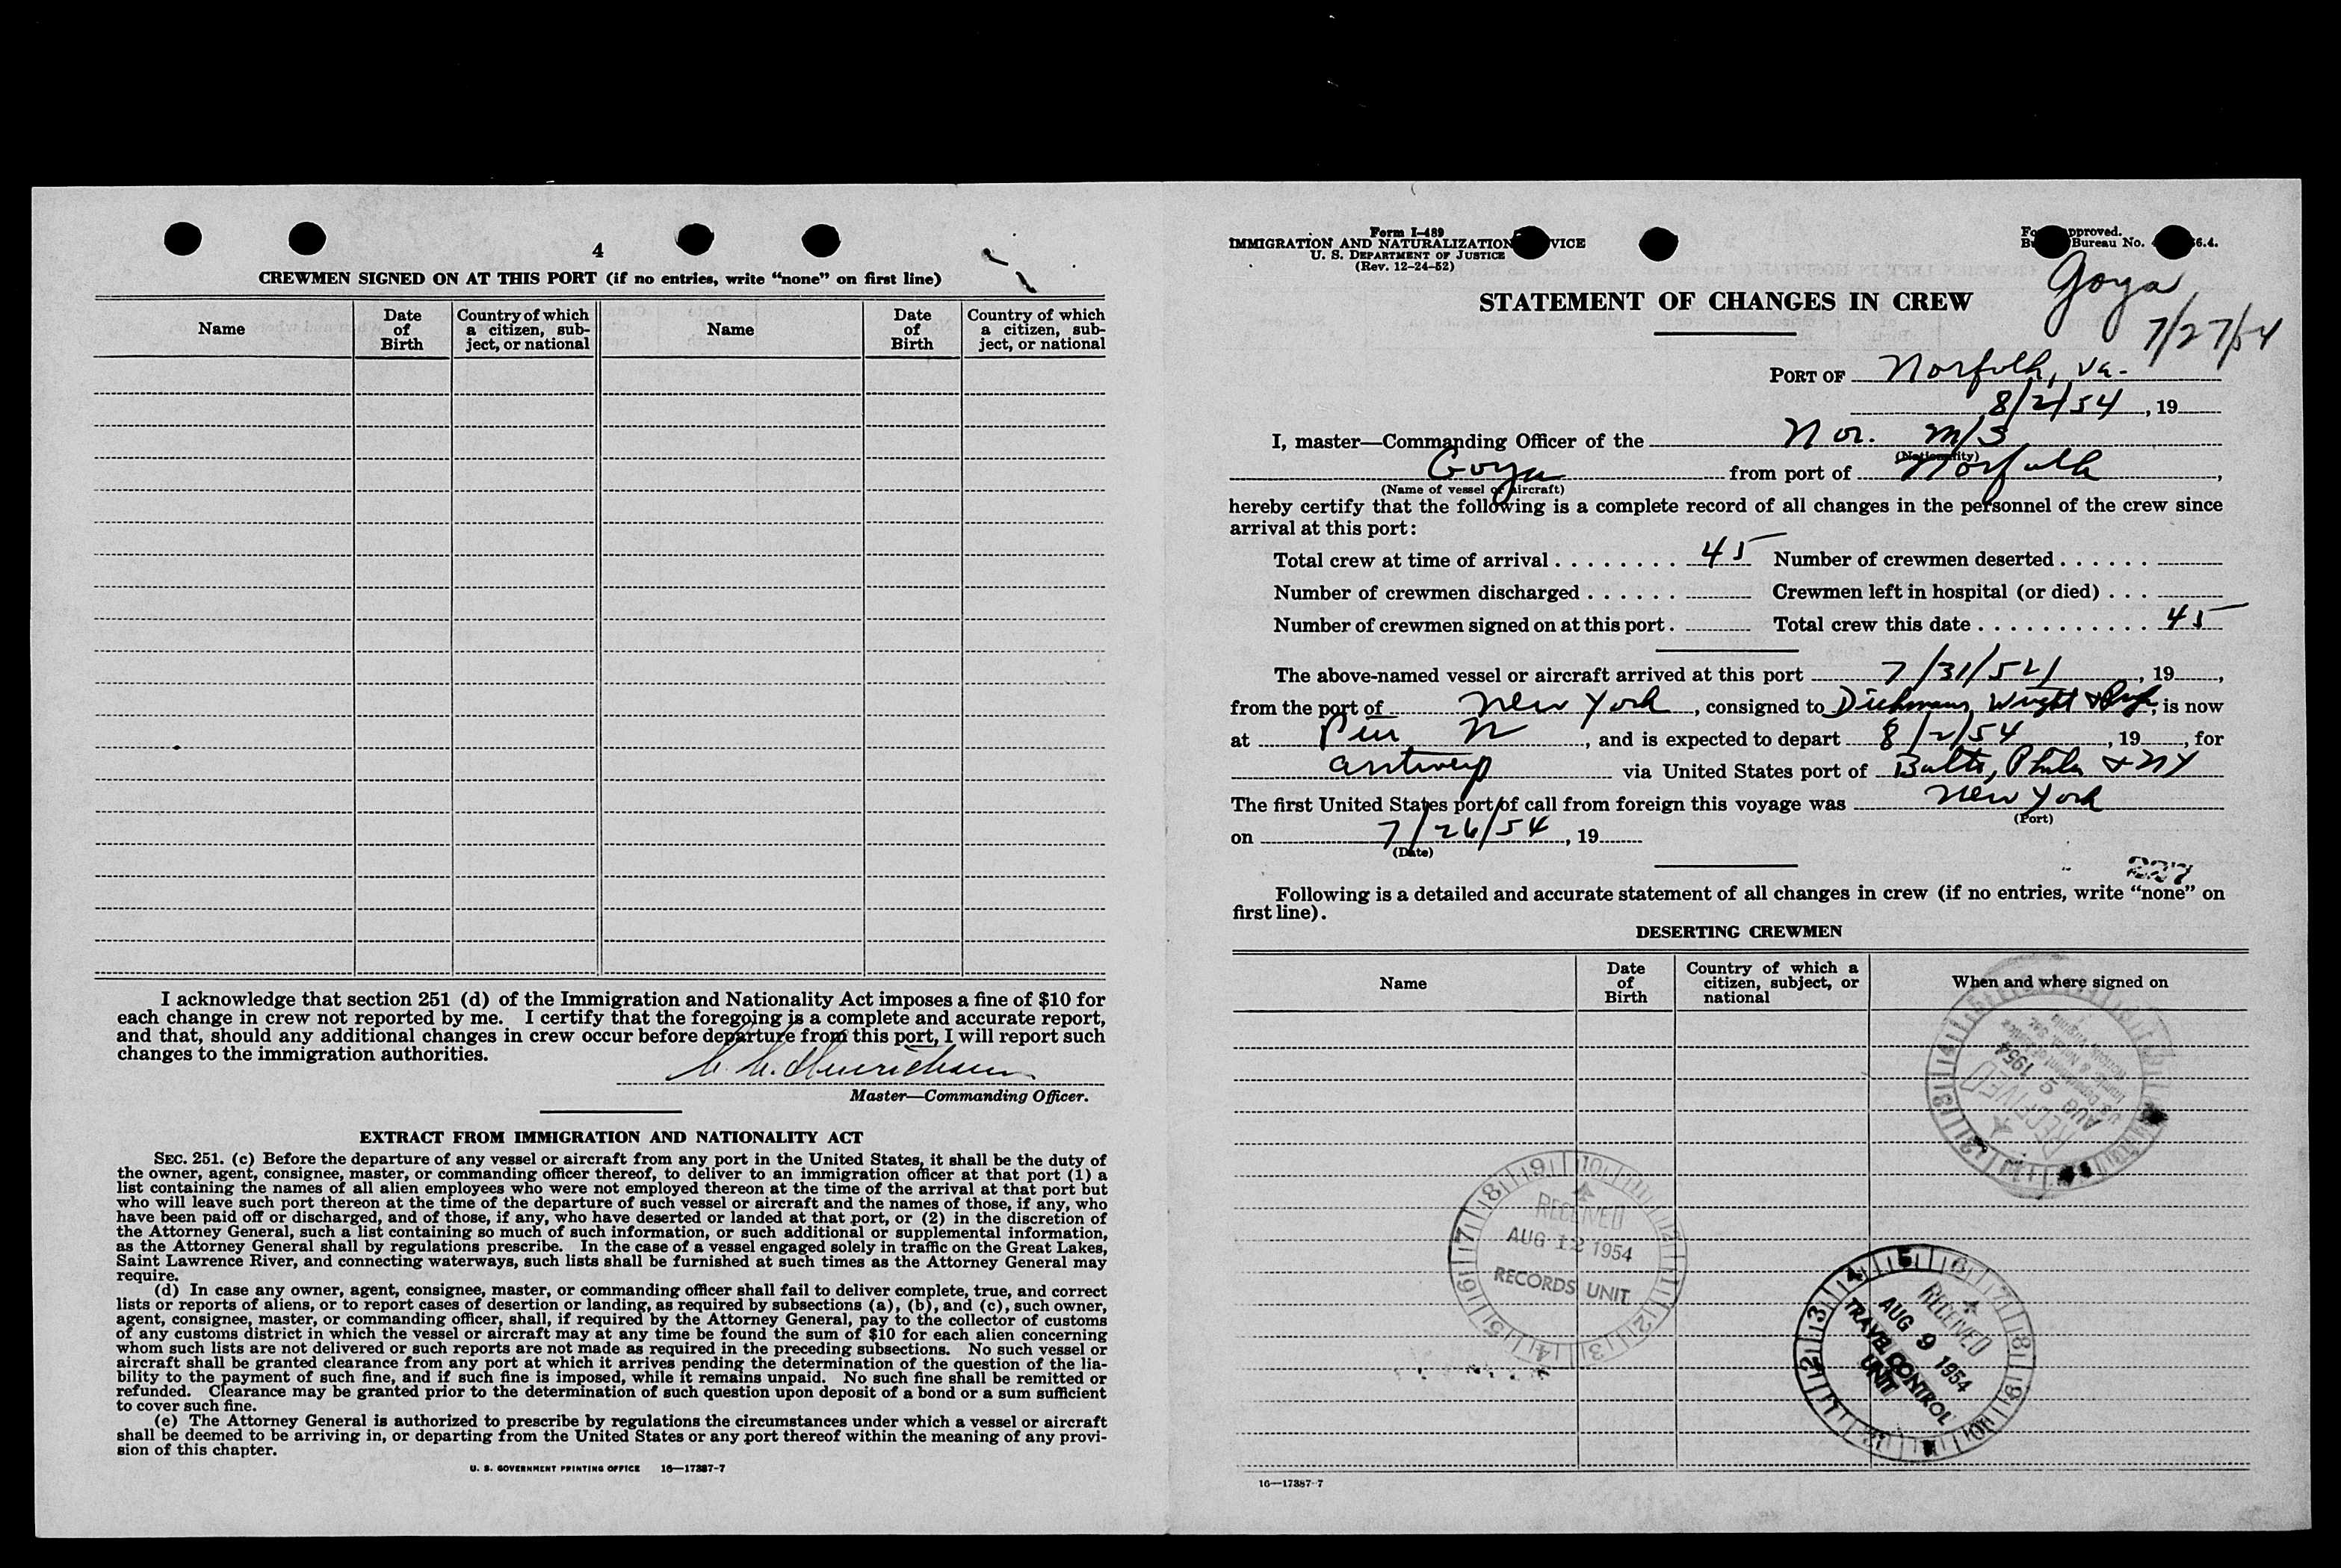 4
CREWMEN SIGNED ON AT THIS PORT (if no entries, write “none” on first line)
Name
Date of Birth
Country of which a citizen, sub-
ject, or national
Name
Date of Birth
Country of which a citizen, sub-
ject, or national
I acknowledge that section 251 (d) of the Immigration and Nationality Act imposes a fine of $10 for
each change in crew not reported by me. I certify that the foregoing is a complete and accurate report,
and that, should any additional changes in crew occur before departure from this port, I will report such
changes to the immigration authorities.
Master—Commanding Officer.
EXTRACT FROM IMMIGRATION AND NATIONALITY ACT
SEC. 251. (c) Before the departure of any vessel or aircraft from any port in the United States, it shall be the duty of
the owner, agent, consignee, master, or commanding officer thereof, to deliver to an immigration officer at that port (1) a
list containing the names of all alien employees who were not employed thereon at the time of the arrival at that port but
who will leave such port thereon at the time of the departure of such vessel or aircraft and the names of those, if any, who
have been paid off or discharged, and of those, if any, who have deserted or landed at that port, or (2) in the discretion of
the Attorney General, such a list containing so much of such information, or such additional or supplemental information,
as the Attorney General shall by regulations prescribe. In the case of a vessel engaged solely in traffic on the Great Lakes,
Saint Lawrence River, and connecting waterways, such lists shall be furnished at such times as the Attorney General may
require.
(d) In case any owner, agent, consignee, master, or commanding officer shall fail to deliver complete, true, and correct
lists or reports of aliens, or to report cases of desertion or landing, as required by subsections (a), (b), and (c), such owner,
agent, consignee, master, or commanding officer, shall, if required by the Attorney General, pay to the collector of customs
of any customs district in which the vessel or aircraft may at any time be found the sum of $10 for each alien concerning
whom such lists are not delivered or such reports are not made as required in the preceding subsections. No such vessel or
aircraft shall be granted clearance from any port at which it arrives pending the determination of the question of the lia-
bility to the payment of such fine, and if such fine is imposed, while it remains unpaid. No such fine shall be remitted or
refunded. Clearance may be granted prior to the determination of such question upon deposit of a bond or a sum sufficient
to cover such fine.
(e) The Attorney General is authorized to prescribe by regulations the circumstances under which a vessel or aircraft
shall be deemed to be arriving in, or departing from the United States or any port thereof within the meaning of any provi-
sion of this chapter.
U. S. GOVERNMENT PRINTING OFFICE 16—17387-7
Form I-489
IMMIGRATION AND NATURALIZATION VICE
U. S. DEPARTMENT OF JUSTICE
(Rev. 12-24-52)
pproved.
Bureau No. 6.4.
Goya
7/27/54
STATEMENT OF CHANGES IN CREW
PORT OF Norfolk, Va.
8/2/54, 19
I, master—Commanding Officer of the Nor. M/S
(Nationality)
Goya from port of Norfolk,
(Name of vessel or aircraft)
hereby certify that the following is a complete record of all changes in the personnel of the crew since
arrival at this port:
Total crew at time of arrival 45 Number of crewmen deserted
Number of crewmen discharged Crewmen left in hospital (or died)
Number of crewmen signed on at this port. Total crew this date 45
The above-named vessel or aircraft arrived at this port 7/31/54, 19,
from the port of New York, consigned to Wright &, is now
at Pier N, and is expected to depart 8/2/54, 19, for
Antwerp via United States port of Balto, Phila & NY
The first United States port of call from foreign this voyage was New York
(Port)
on 7/26/54, 19
(Date)
227
Following is a detailed and accurate statement of all changes in crew (if no entries, write “none” on
first line).
DESERTING CREWMEN
Name
Date of Birth
Country of which a citizen, subject, or national
When and where signed on
RECEIVED
AUG 5 1954
RECEIVED
AUG 12 1954
RECORDS UNIT
RECEIVED
AUG 9 1954
TRAVEL CONTROL
UNIT
16—17387-7